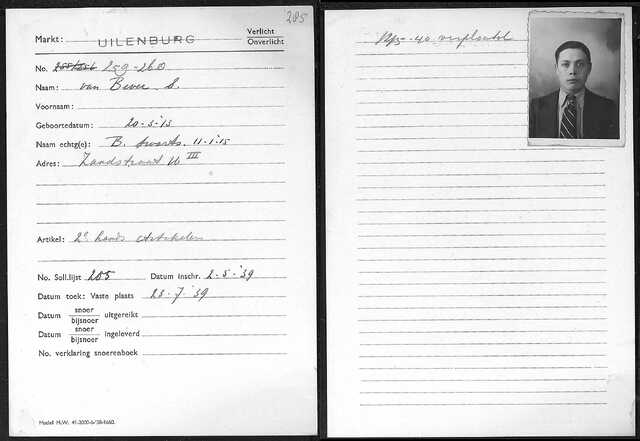 285
Markt: UILENBURG Verlicht
Onverlicht
No. 259-260
Naam: van Bever S.
Voornaam:
Geboortedatum: 20-5-'15
Naam echtg(e): B. Swarts. 11-1-'15
Adres: Zandstraat 10 III
Artikel: 2e hands artikelen
No. Soll.lijst 205 Datum inschr. 2-5-'39
Datum toek: Vaste plaats 23-7-'39
Datum snoer
bijsnoer uitgereikt
Datum snoer
bijsnoer ingeleverd
No. verklaring snoerenboek
Model M.W. 41-3000-6/'38-1660.
-40 verplaatst